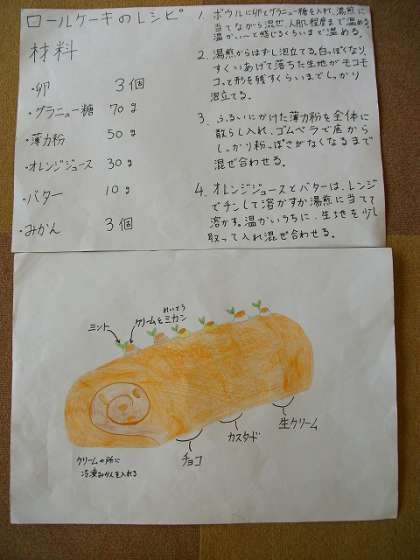 ロールケーキのレシピ
材料
・卵 3個
・グラニュー糖 70g
・薄力粉 50g
・オレンジジュース 30g
・バター 10g
・みかん 3個
1. ボウルに卵とグラニュー糖を入れ、湯煎に
当てながら混ぜ、人肌程度まで温める。
温かい〜と感じるくらいまで温める。
2. 湯煎からはずし泡立てる。白っぽくなり、
すくいあげて落ちた生地がモコモ
コっと形を残すくらいまでしっかり
泡立てる。
3. ふるいにかけた薄力粉を全体に
散らし入れ、ゴムベラで底から
しっかり粉っぽさがなくなるまで
混ぜ合わせる。
4. オレンジジュースとバターは、レンジ
でチンして溶かすか湯煎に当てて
溶かす。温かいうちに、生地を少し
取って入れ混ぜ合わせる。
ミント
クリームとミカン
れいとう
チョコ
カスタード
生クリーム
クリームの所に
冷凍みかんを入れる